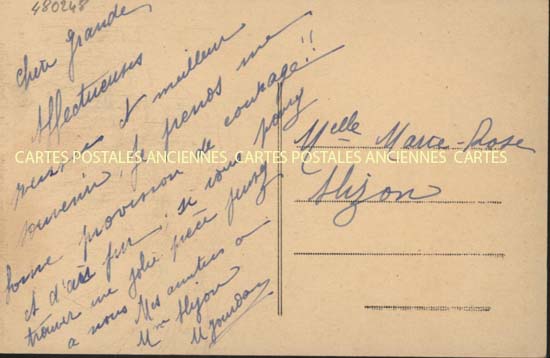 480248
Chère grande
Affectueuses
pensées et meilleur
souvenir. Je prends une
bonne provision de courage!!
et d'air pur, si vous pouvez
trouver une jolie pièce
à nous
Mes amitiés à
Mme Hizon
M Jourdan
Melle Marie-Rose
Hizon
CARTES POSTALES ANCIENNES CARTES POSTALES ANCIENNES CARTES POSTALES ANCIENNES CARTES